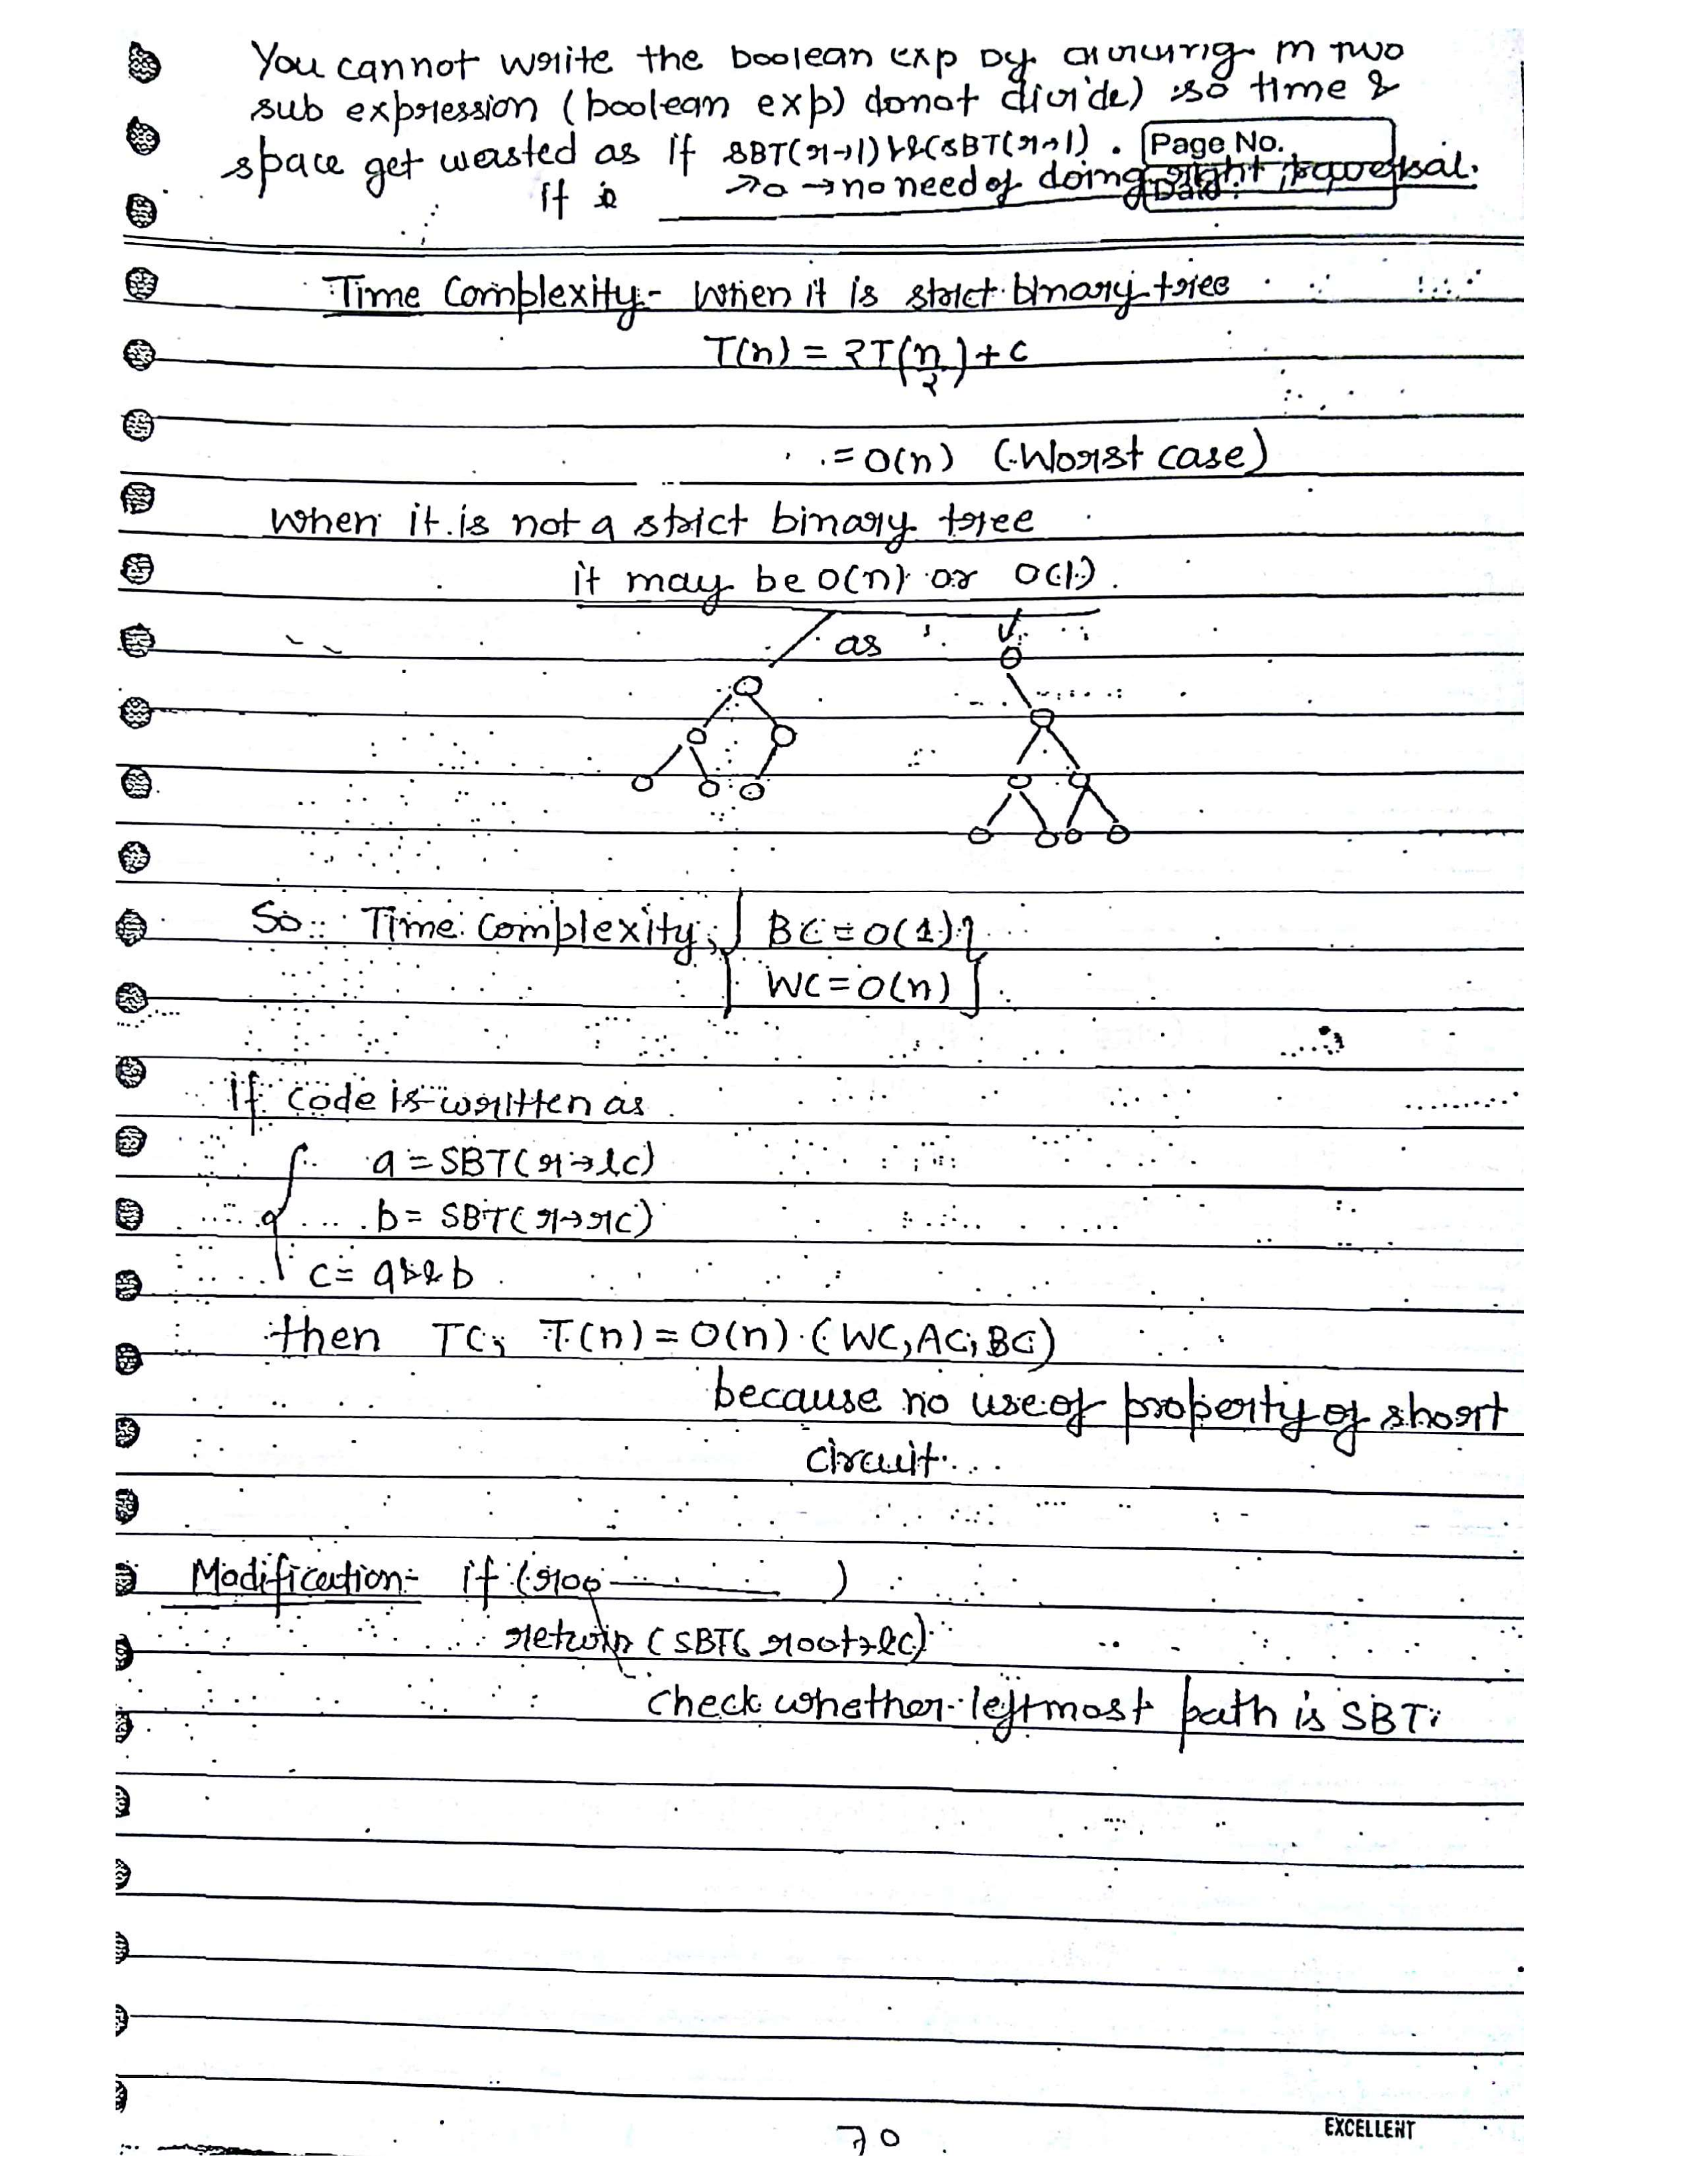 You cannot write the boolean exp by in two
sub expression (boolean exp) donot divide) so time &
space get wasted as if SBT(r→l) && (SBT(r→r).
Page No.
If is → 0 → no need of doing right traversal.
Date :
Time Complexity:- When it is strict binary tree
T(n) = 2T(n/2) + c
= O(n) (Worst case)
When it is not a strict binary tree
it may be O(n) or O(1).
as
So Time Complexity; { BC = O(1) }
{ WC = O(n) }
if code is written as
a = SBT(r→lc)
b = SBT(r→rc)
c = a&&b
then TC; T(n) = O(n) (WC, AC, BC)
because no use of property of short
circuit
Modification:- if (roo )
return (SBT(root→lc)
check whether leftmost path is SBT.
70
EXCELLENT